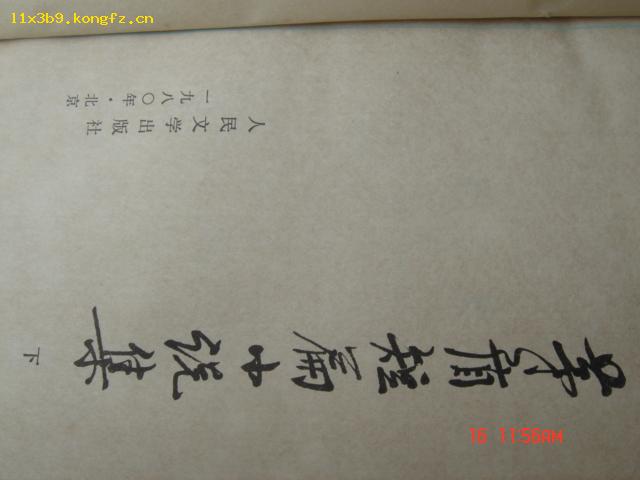 11x3b9.kongfz.cn
茅盾短篇小说集
下
人民文学出版社
一九八〇年·北京
16 11:56AM